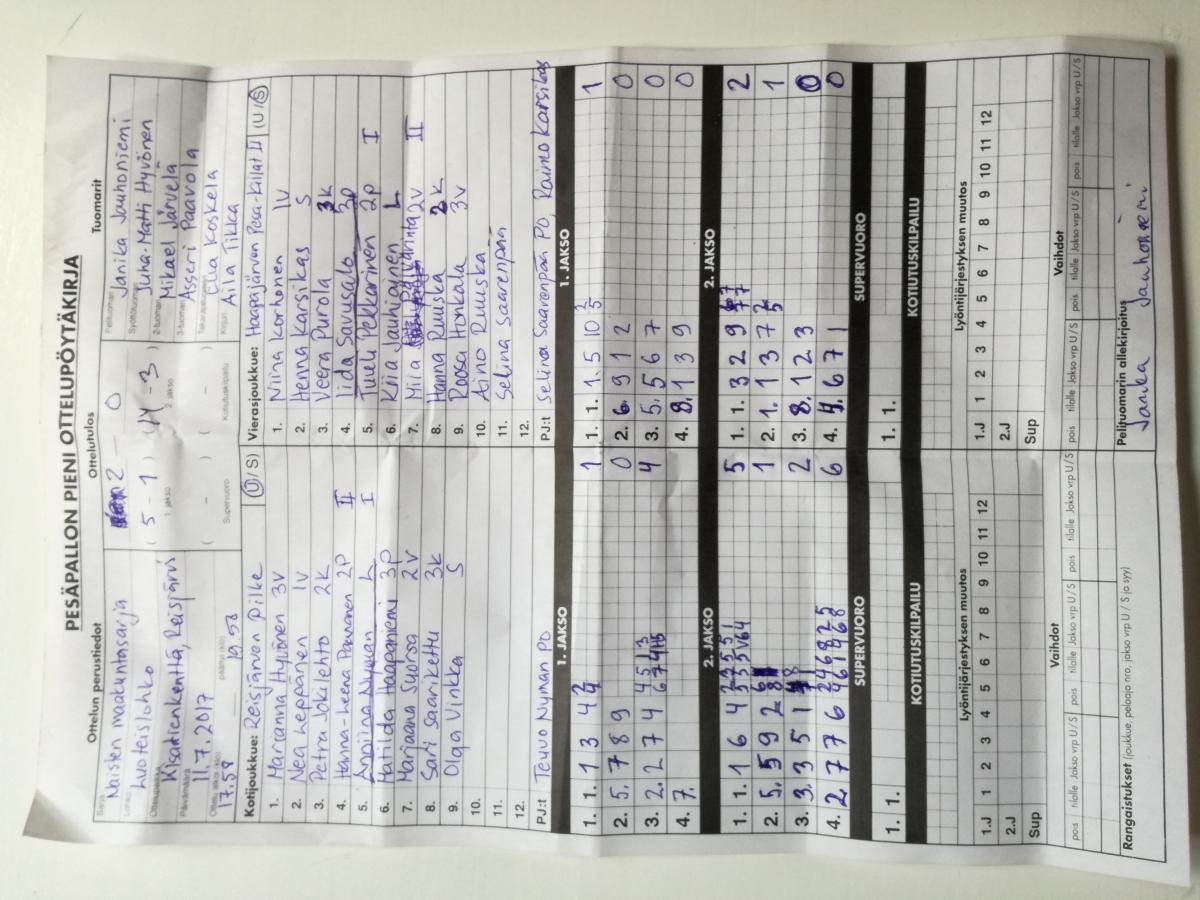 PESÄPALLON PIENI OTTELUPÖYTÄKIRJA
Ottelun perustiedot
Ottelutulos
Tuomarit
Sarja
Naisten maakuntasarja
Lohko
Luoteislohko
Ottelupaikka
Kisatienkenttä, Reisjärvi
Päivämäärä
11.7.2017
Ottelu alkoi (klo)
17.58
päättyi (klo)
19.53
2 - 0
( 5 - 1 ) ( 14 - 3 )
1. jakso
2. jakso
( - ) ( - )
Supervuoro
Kotiutuskilpailu
Pelituomari
Janika Jauhoniemi
Syöttötuomari
Juha-Matti Hyvönen
2-tuomari
Mikael Järvelä
3-tuomari
Asseri Paavola
Takarajatuomari
Eila Koskela
Kirjuri
Aila Tikka
Kotijoukkue: Reisjärven Pilke (U / S)
1. Marianna Hyvönen 3v
2. Nea Leppänen 1v
3. Petra Jokilehto 2k
4. Hanna-Leena Paavonen 2p II
5. Anniina Nyman L I
6. Matilda Haapaniemi 3p
7. Marjaana Suorsa 2v
8. Sari Saariketty 3k
9. Olga Vinkka S
10.
11.
12.
PJ:t Teuvo Nyman PO
Vierasjoukkue: Haapajärven Pesä-Kiilat II (U / S)
1. Niina Korhonen 1v
2. Henna Karsikas S
3. Veera Purola 3k
4. Iida Savusalo 3p
5. Tuuli Pekkarinen 2p I
6. Kiia Jauhiainen L
7. Miia Päivärinta 2v II
8. Hanna Ruuska 2k
9. Roosa Honkala 3v
10. Aino Ruuska
11. Selina Saarenpää
12.
PJ:t Selina Saarenpää PO, Raimo Karsikas
1. JAKSO
1. 1. 1 3 4 4 2 1
2. 5. 7 8 9 0
3. 2. 2 7 4 4
4. 7.
1. JAKSO
1. 1. 1. 5 10 2 5 1
2. 6. 9 1 2 0
3. 5. 5 6 7 0
4. 8. 1 3 9 0
2. JAKSO
1. 1. 1 6 4 5
2. 5. 5 9 2 1
3. 3. 3 5 1 2
4. 2. 7 7 6 6
2. JAKSO
1. 1. 3 2 9 2
2. 1. 1 3 7 1
3. 8. 1 2 3 0
4. 4. 6 7 1 0
SUPERVUORO
1. 1.
SUPERVUORO
1. 1.
KOTIUTUSKILPAILU
KOTIUTUSKILPAILU
Lyöntijärjestyksen muutos
1.J 1 2 3 4 5 6 7 8 9 10 11 12
2.J
Sup
Lyöntijärjestyksen muutos
1.J 1 2 3 4 5 6 7 8 9 10 11 12
2.J
Sup
Vaihdot
pois tilalle Jakso vrp U / S pois tilalle Jakso vrp U / S pois tilalle Jakso vrp U / S
Vaihdot
pois tilalle Jakso vrp U / S pois tilalle Jakso vrp U / S pois tilalle Jakso vrp U / S
Rangaistukset (joukkue, pelaaja nro, jakso vrp U / S ja syy)
Pelituomarin allekirjoitus
Janika Jauhoniemi